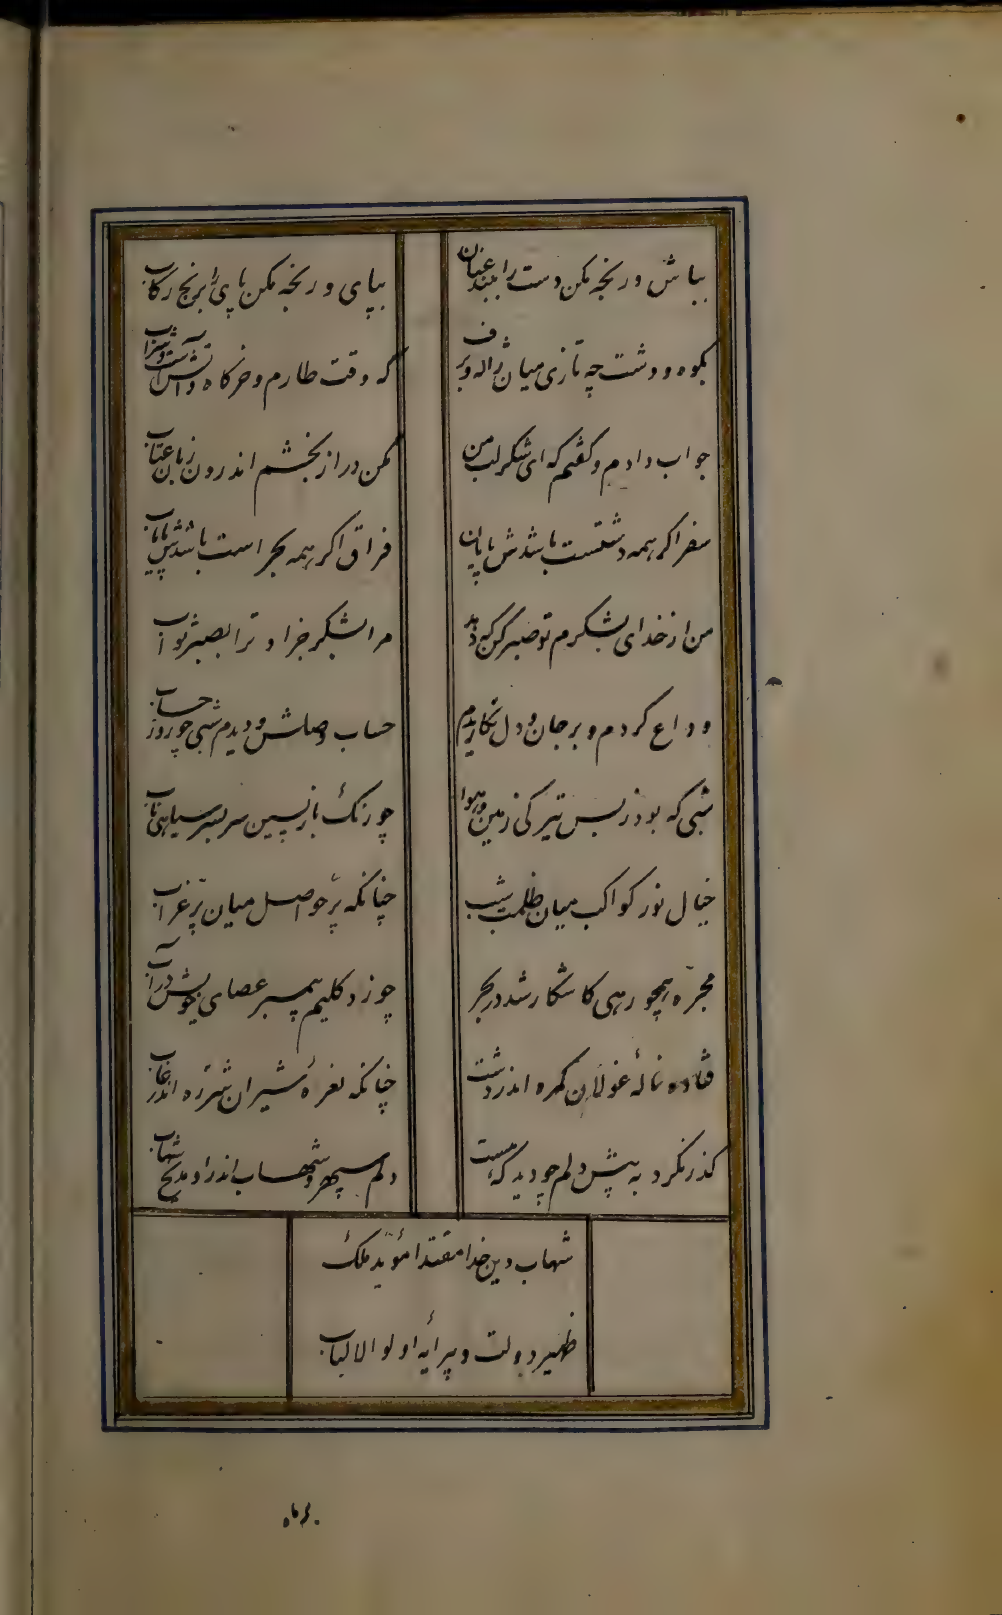 بباش و رنجه مکن دست را ببند عنان
بپای و رنجه مکن پای را برنج رکاب
بکوه و دشت چه تازی میان ژاله و برف
که وقت طارم و خرکاه و آتش است و شراب
جواب دادم و کفتم که ای شکر لب من
مکن دراز بخشم اندرون زبان عتاب
سفر اکر همه دشتست باشدش پایان
فراق اکر همه بحر است باشدش پایاب
من از خدای بشکرم تو صبر کن که دهد
مرا بشکر جزا و ترا بصبر ثواب
وداع کردم و بر جان و دل نکاریدم
حساب وصلش و دیدم شبی چو روز حساب
شبی که بود ز بس تیرکی زمین و هوا
چو رنک باز پسین سر بسر سیاهی ناب
خیال نور کواکب میان ظلمت شب
چنانکه پر حواصل میان پر غراب
مجره همچو رهی کاشکار شد در بحر
چو زد کلیم پیمبر عصای خویش در آب
فتاده نالهٔ غولان کمره اندر دشت
چنانکه نعرهٔ شیران شرزه اندر غاب
کذر نکرد به پیش دلم چو دید که هست
دلم سپهر و شهاب اندر او مدیح شهاب
شهاب دین خدا مقتدا مؤید ملک
ظهیر دولت و پیرایه اولو الالباب